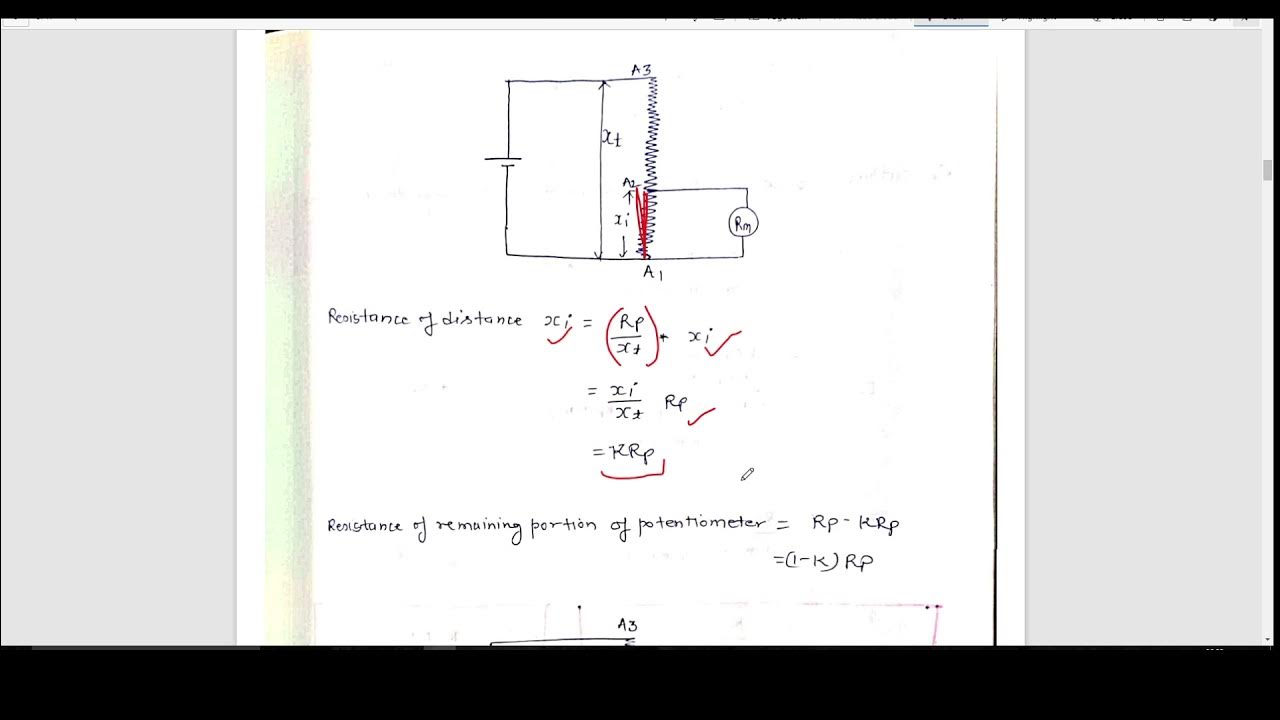 A3
xt
A2
xi
Rm
A1
Resistance of distance xi = (Rp/xt) * xi
= xi/xt Rp
= KRp
Resistance of remaining portion of potentiometer = Rp - KRp
=(1-K) Rp
A3